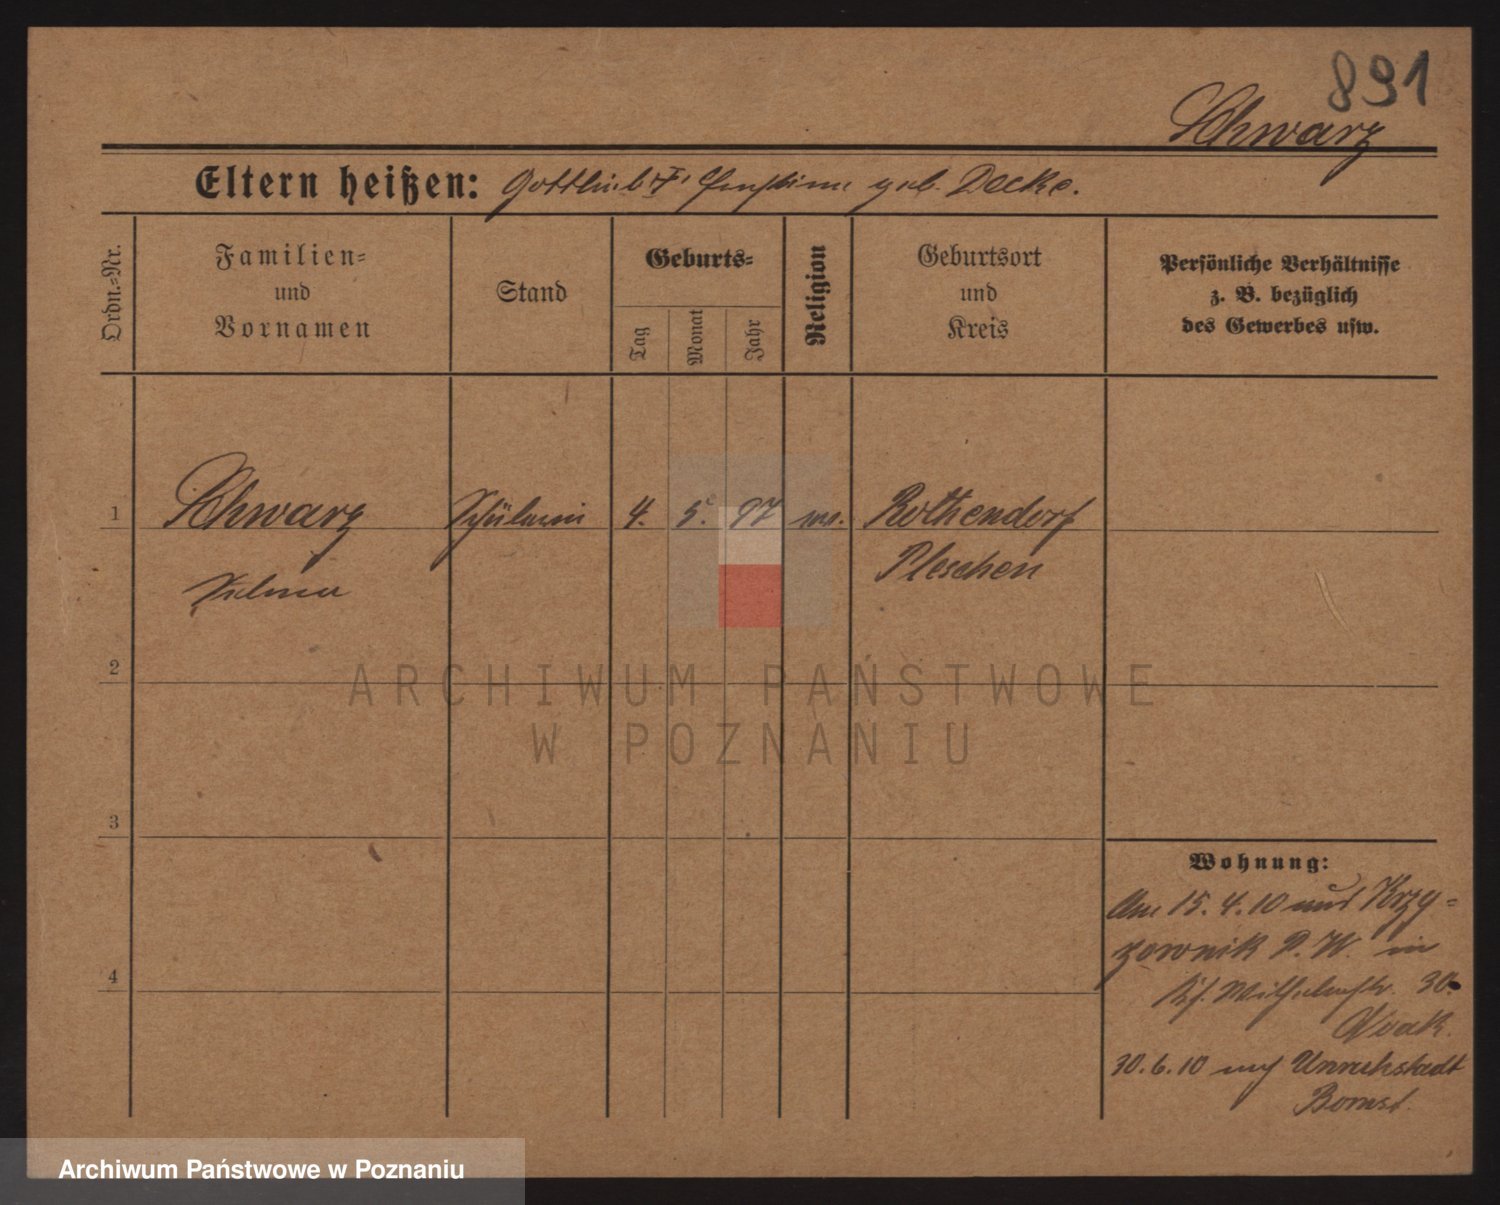 891
Schwarz
Eltern heißen: Gottlieb † Ernstine geb. Decke.
Ordn.-Nr.
Familien-
und
Vornamen
Stand
Geburts-
Tag
Monat
Jahr
Religion
Geburtsort
und
Kreis
Persönliche Verhältnisse
z. B. bezüglich
des Gewerbes usw.
1
Schwarz
Schülerin
4.
5.
97
Rothendorf
Selma
Pleschen
2
ARCHIWUM PAŃSTWOWE
W POZNANIU
3
4
Wohnung:
Am 15.4.10 aus Krzy-
zownik P. W. in
Wilhelmstr. 30.
Noak.
30.6.10 nach Unruhstadt
Bomst.
Archiwum Państwowe w Poznaniu